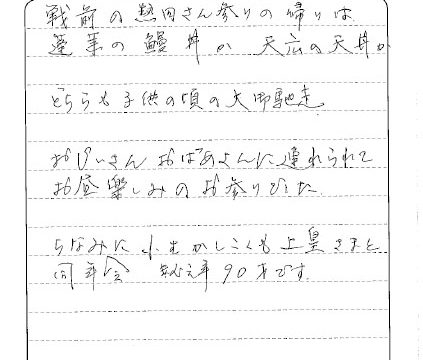 戦前の熱田さん参りの帰りは
蓬莱の鰻丼か 天六の天丼か
どちらも子供の頃の大御馳走
おじいさん おばあさんに連れられて
お昼楽しみのお参りでした
ちなみに かしこくも上皇さまと
同年 90才です